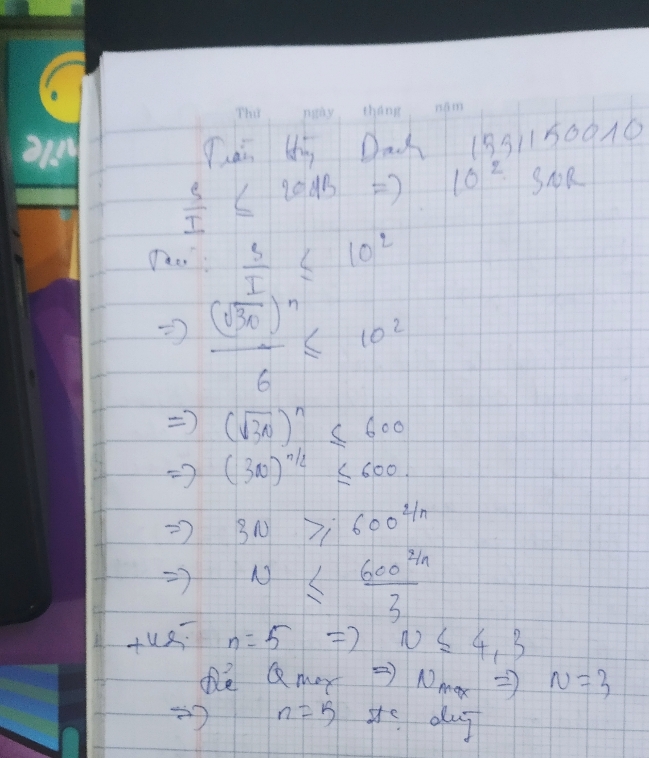 Thứ ngày tháng năm
Trần Danh 1931150010
S/I ≤ 20dB => 10² SNR
S/I ≤ 10²
=> (√3N)ⁿ/6 ≤ 10²
=> (√3N)ⁿ ≤ 600
=> (3N)^(n/2) ≤ 600.
=> 3N ≥ 600^(2/n)
=> N ≤ 600^(2/n)/3
+ Với n = 5 => N ≤ 4,3
Để Qmax => Nmax => N = 3
=> n = 5